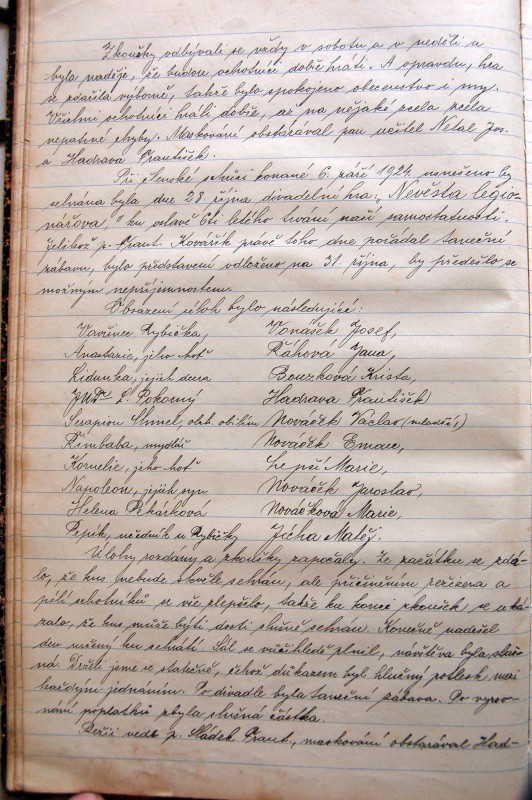 Zkoušky odbývali se vždy v sobotu a v neděli a
byla naděje, že budou ochotníci dobře hráti. A opravdu, hra
se zdařila výborně, takže bylo spokojeno obecenstvo i my.
Všichni ochotníci hráli dobře, až na nějaké zcela zcela
nepatrné chyby. Maskování obstarával pan učitel Netal Jos.
a Hadrava František.
Při členské schůzi konané 6. září 1924 usnešeno by
sehrána byla dne 28. října divadelní hra: „Nevěsta legio-
nářova," ku oslavě 6ti letého trvání naší samostatnosti.
Jelikož p. Frant. Kovářík právě toho dne pořádal taneční
zábavu, bylo představení odloženo na 31. října, by předešlo se
možným nepříjemnostem.
Obsazení úloh bylo následující:
Vavřinec Rybička, Vonášek Josef,
Anastazie, jeho choť Říhová Jana,
Lidunka, jejich dcera Bouzková Krista,
JUDr L. Pokorný Hadrava František,
Serapion Chmel, obch. obilím Nováček Václav (mladší)
Kimbaba, mydlář Nováček Eman,
Kornelie, jeho choť Lepší Marie,
Napoleon, jejich syn Nováček Jaroslav,
Helena Pekárková Nováčková Marie,
Pepík, učedník u Rybičky Jícha Matěj.
Úlohy rozdány a zkoušky započaly. Ze začátku se zdá-
lo, že kus nebude sehrán, ale přičiněním režiséra a
pílí ochotníků se vše zlepšilo, takže ku konci zkoušek, se uká-
zalo, že kus může býti dosti slušně sehrán. Konečně nadešel
den určený ku sehrátí. Sál se plnil, návštěva byla sluš-
ná. Drželi jsme se statečně, čehož důkazem byl hlučný potlesk mezi
každým jednáním. Po divadle byla taneční zábava. Po vyrov-
nání poplatků zbyla slušná částka.
Režii vedl p. Sládek Frant., maskování obstarával Had-